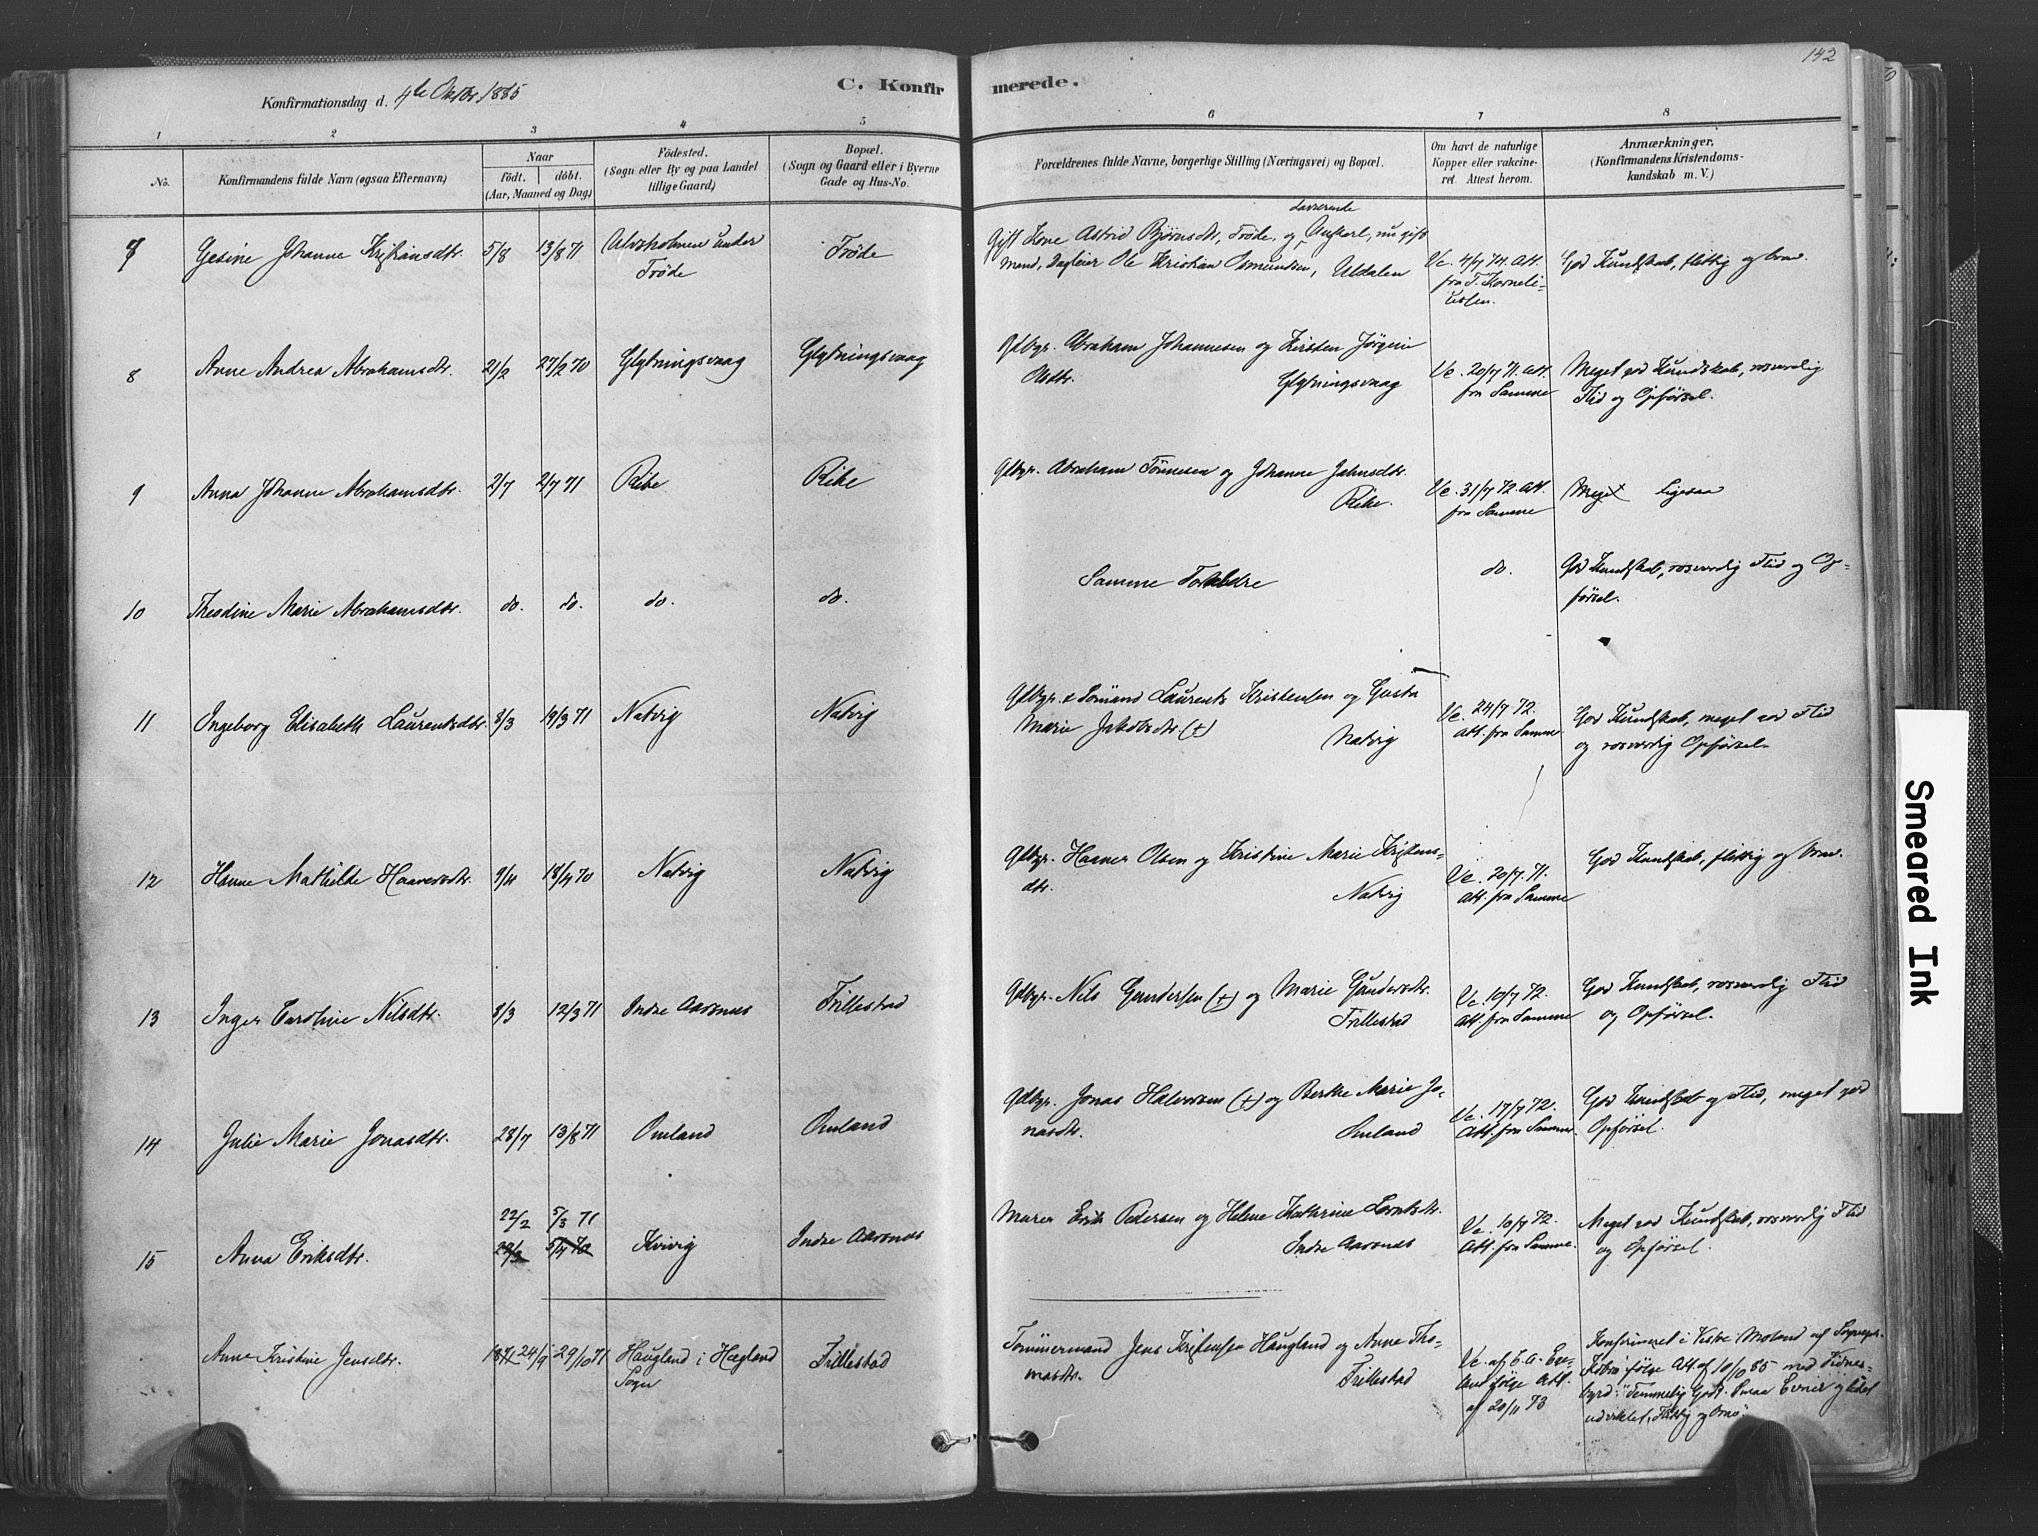 142
C. Konfirmerede.
Konfirmationsdag d. 4de Oktbr. 1885
1 2 3 4 5 6 7 8
No.
Konfirmandens fulde Navn (ogsaa Efternavn)
Naar
födt. döbt.
(Aar, Maaned og Dag)
Födested.
(Sogn eller By og paa Landet
tillige Gaard)
Bopæl.
(Sogn og Gaard eller i Byerne
Gade og Hus-No.
Forældrenes fulde Navne, borgerlige Stilling (Næringsvei) og Bopæl.
Om havt de naturlige
Kopper eller vakcine-
ret. Attest herom.
Anmærkninger,
(Konfirmandens Kristendoms-
kundskab m. V.)
7 Gesine Johanne Kristiansdtr. 5/8 13/8 71 under
Trøde
Trøde
daværende
Gift Kone Astrid Bjørnsdtr, Trøde, og Ungkarl, nu gift
Mand, Dagleier Ole Kristian Osmundsen, Uldalen
Vc. 4/7 74. Att.
fra T. Korneli-
ussen.
God Kundskab, flittig og brav.
8 Anne Andrea Abrahamsdtr. 21/2 27/2 70 Glytningsvaag Glytningsvaag
Gdbgr. Abraham Johannesen og Kirsten Jørgine
Olsdtr. Glytningsvaag
Vc. 20/7 71. Att.
fra Samme
Meget god Kundskab, rosværdig
Flid og Opførsel.
9 Anna Johanne Abrahamsdtr. 2/7 2/7 71 Ribe Ribe
Gdbgr. Abraham Tønnesen og Johanne Jahnsdtr.
Ribe.
Vc. 31/7 72. Att.
fra Samme
Meget ligesaa
10 Theodine Marie Abrahamsdtr. do. do. do. do.
Samme Forældre
do.
God Kundskab, rosværdig Flid og Op-
førsel.
11 Ingeborg Elisabeth Laurentsdtr. 8/3 19/3 71 Natvig Natvig
Gdbgr. & Sömand Laurents Kristensen og Gusta
Marie Jakobsdtr (+) Natvig
Vc. 24/7 72.
Att. fra Samme
God Kundskab, meget god Flid
og rosværdig Opførsel.
12 Hanne Mathilde Haaversdtr. 9/4 18/4 70 Natvig Natvig
Gdbgr. Haaver Olsen og Kristine Marie Kristens-
dtr. Natvig
Vc. 20/7 71.
Att. fra Samme
God Kundskab, flittig og brav.
13 Inger Caroline Nilsdtr. 8/3 12/3 71 Indre Aarsnes Frillestad
Gdbgr. Nils Gundersen (+) og Marie Gundersdtr.
Frillestad
Vc. 10/7 72.
Att. fra Samme
God Kundskab, rosværdig Flid
og Opførsel.
14 Julie Marie Jonasdtr. 28/7 13/8 71 Omland Omland
Gdbgr. Jonas Halvorsen (+) og Berthe Marie Jo-
nasdtr. Omland
Vc. 17/7 72.
Att. fra Samme.
God Kundskab og Flid, meget god
Opførsel.
22/2 5/3 71
15 Anna Eriksdtr. 5/4 70 Kvivig Indre Aarsnes
Murer Erik Pedersen og Helene Kathrine Lorntsdtr.
Indre Aarsnes
Vc. 10/7 72.
Att. fra Samme.
Meget god Kundskab, rosværdig Flid
og Opførsel.
Anne Kristine Jensdtr. 1871 24/9 29/10 71 Haugland i Hægland
Sogn
Frillestad
Tømmermand Jens Kristensen Haugland og Anne Tho-
masdtr. Frillestad
Vc. af
følge Att.
af 20/11 73
Konfirmeret i Vestre Moland af Sognepr.
følge Att af 10/10 85 med Vidnes-
byrd: "Temmelig Godt. Smaa Evner og lidet
udviklet. Flittig og
Smeared Ink